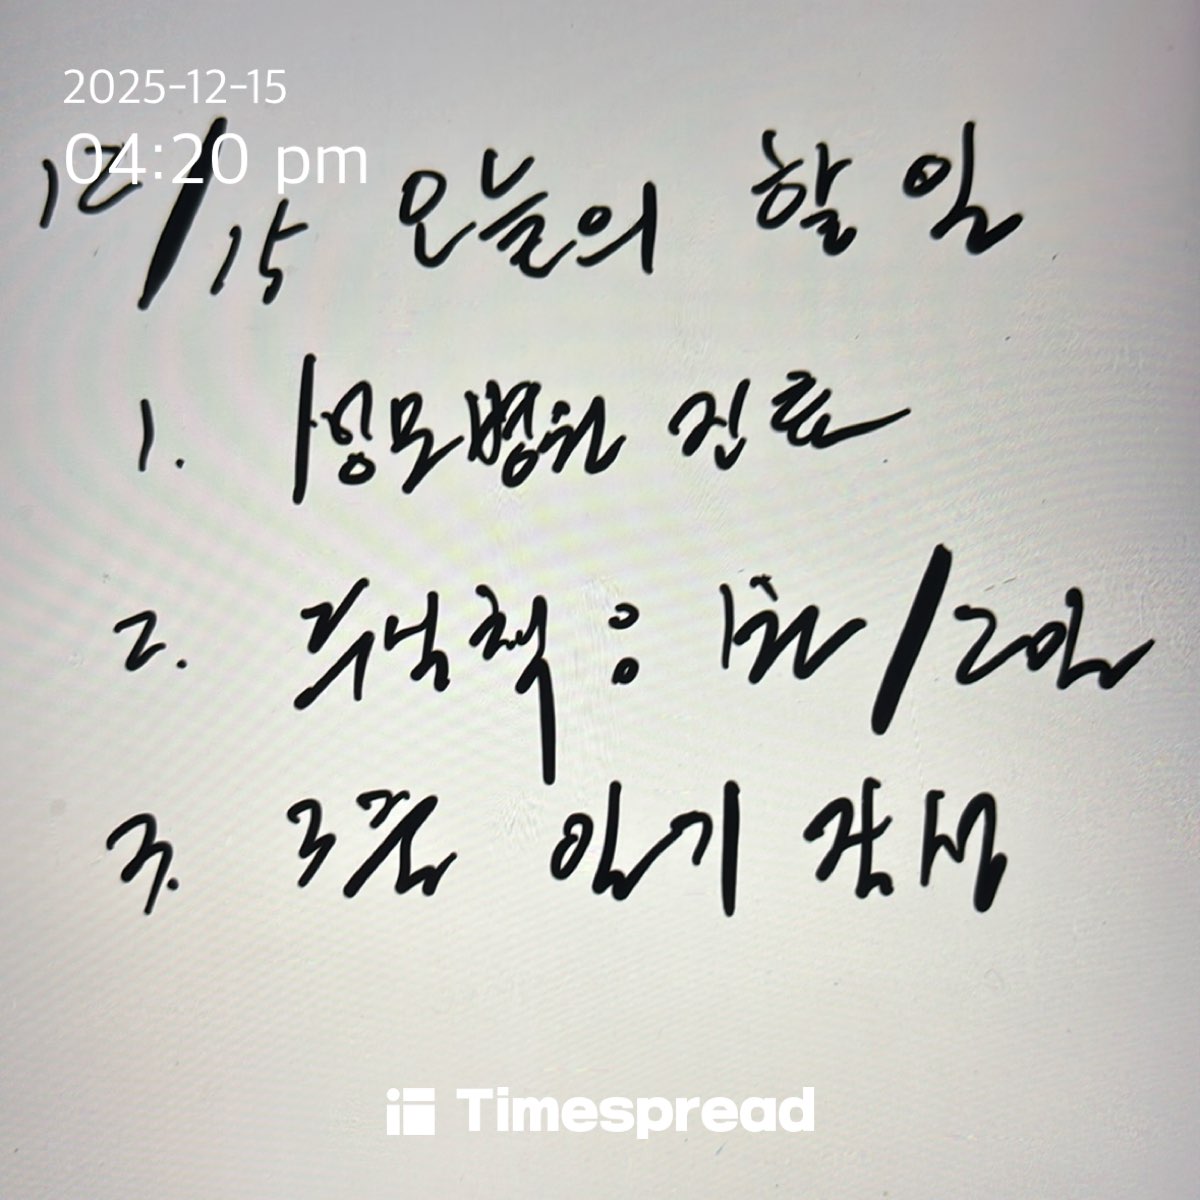 2025-12-15
04:20 pm
12/15 오늘의 할 일
1. 성모병원 진료
2. 책 : 1권/2일
3. 3줄 일기 작성
Timespread